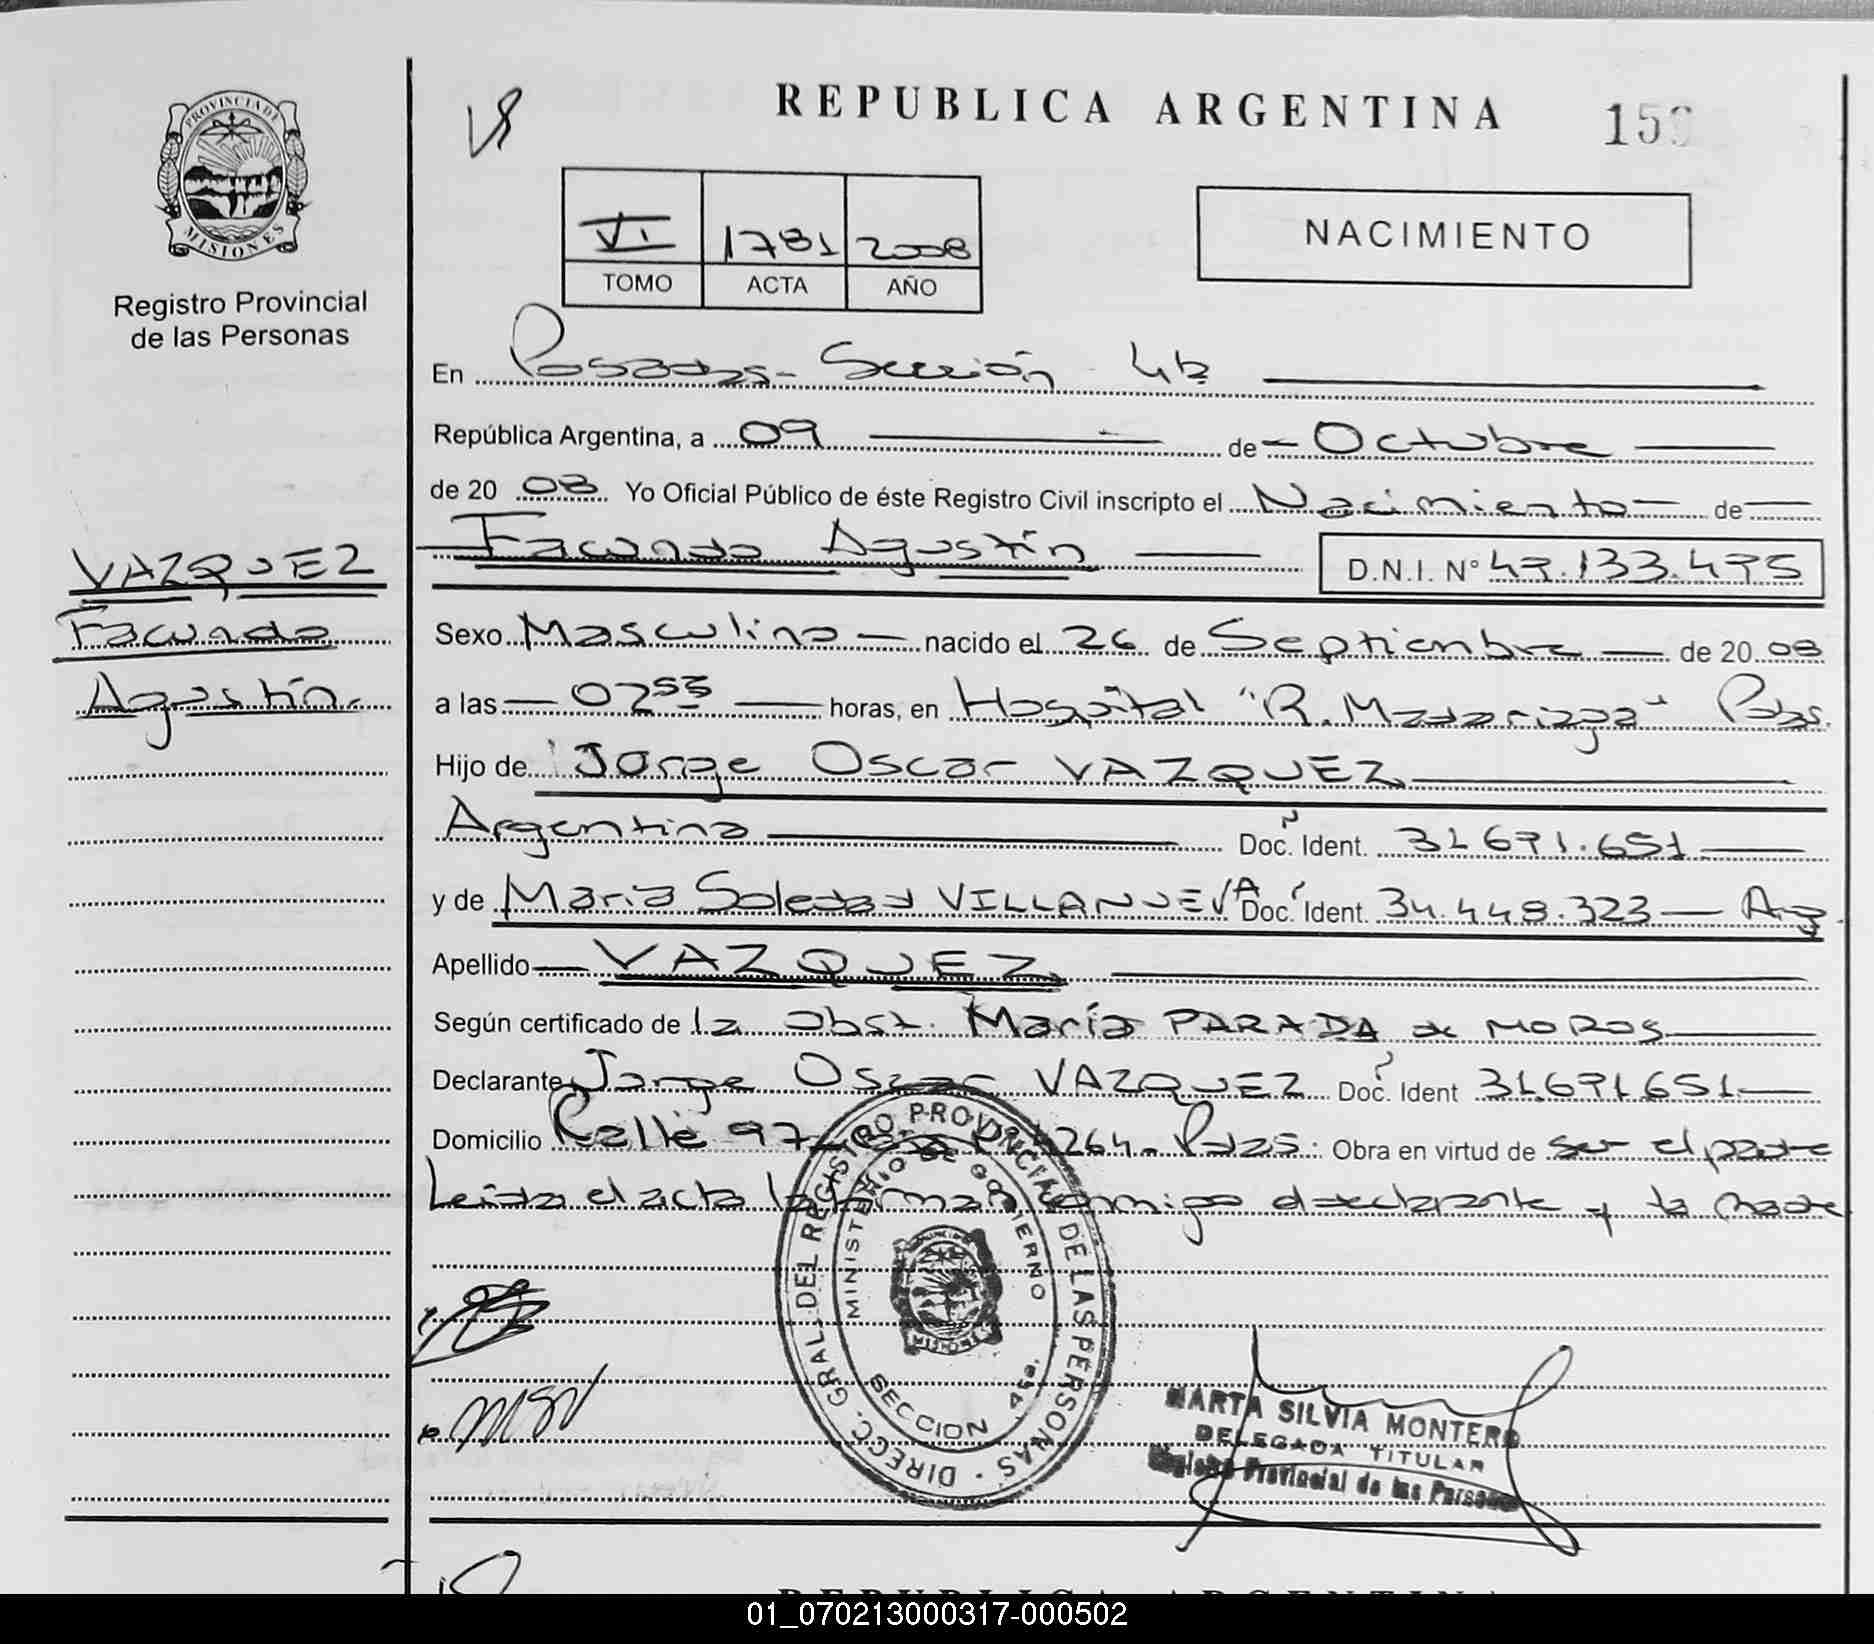 REPUBLICA ARGENTINA
PROVINCIA DE
MISIONES
Registro Provincial
de las Personas
VI 1781 2008
TOMO ACTA AÑO
NACIMIENTO
En Posadas - Sección 4ta
República Argentina, a 09 de Octubre
de 20 08 Yo Oficial Público de éste Registro Civil inscripto el Nacimiento de
Facundo Agustín D.N.I. Nº 47.133.475
VAZQUEZ
Facundo
Agustín.
Sexo Masculino nacido el 26 de Septiembre de 20 08
a las 02 53 horas, en Hospital "R. Madariaga" Pdas.
Hijo de Jorge Oscar VAZQUEZ
Argentino Doc. Ident. 31.671.651
y de María Soledad VILLANUEVA Doc. Ident. 34.448.323 Arg.
Apellido VAZQUEZ
Según certificado de la Obst. María PARADA de MOROS
Declarante Jorge Oscar VAZQUEZ Doc. Ident 31.671.651
Domicilio Calle 97 4264 - Pdas. Obra en virtud de ser el padre
Leída el acta la firman conmigo el declarante y la madre
DIRECC. GRAL. DEL REGISTRO PROVINCIAL DE LAS PERSONAS
MINISTERIO DE GOBIERNO
SECCION 4ta.
MSV
MARTA SILVIA MONTERO
DELEGADA TITULAR
Registro Provincial de las Personas
REPUBLICA ARGENTINA
01_070213000317-000502